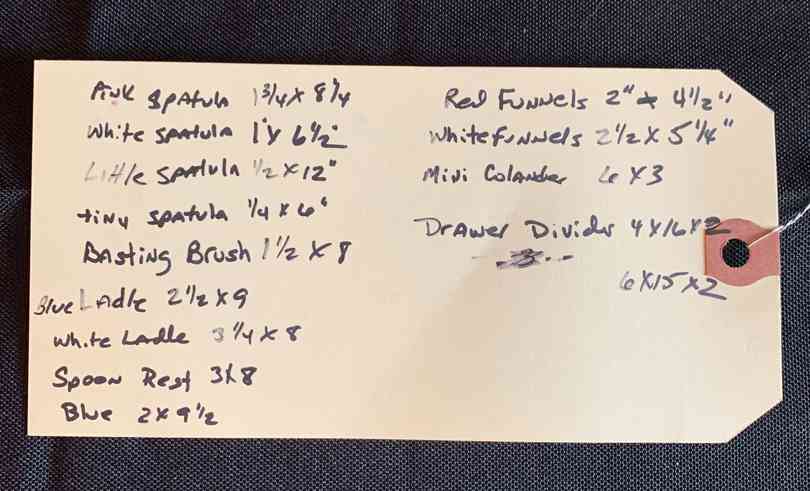 Pink Spatula 1 3/4 X 8 1/4
White Spatula 1" X 6 1/2"
Little Spatula 1/2 X 12"
tiny Spatula 1/4 X 6"
Basting Brush 1 1/2 X 8
Blue Ladle 2 1/2 X 9
White Ladle 3 1/4 X 8
Spoon Rest 3X8
Blue 2 X 9 1/2
Red Funnels 2" X 4 1/2"
White funnels 2 1/2 X 5 1/4"
Mini Colander 6 X 3
Drawer Divider 4 X 16 X 2
6 X 15 X 2